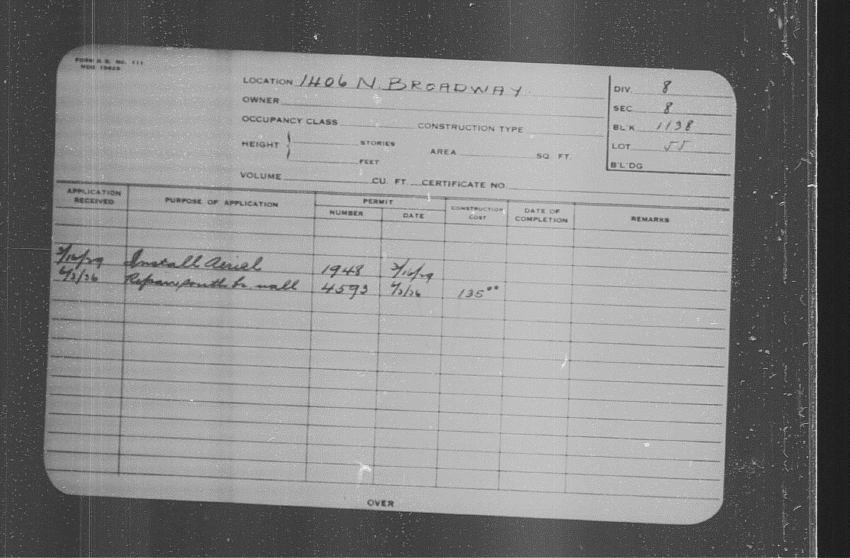 FORM B. B. No. 111
LOCATION 1406 N. BROADWAY
OWNER
OCCUPANCY CLASS CONSTRUCTION TYPE
HEIGHT { STORIES FEET AREA SQ. FT.
VOLUME CU. FT. CERTIFICATE NO.
DIV. 8
SEC. 8
BL'K 1138
LOT 55
B'L'DG
APPLICATION RECEIVED PURPOSE OF APPLICATION PERMIT NUMBER DATE CONSTRUCTION COST DATE OF COMPLETION REMARKS
/16/29 Install Aerial 1948 /16/29
6/3/36 Repair south br wall 4593 6/3/36 135⁰⁰
OVER